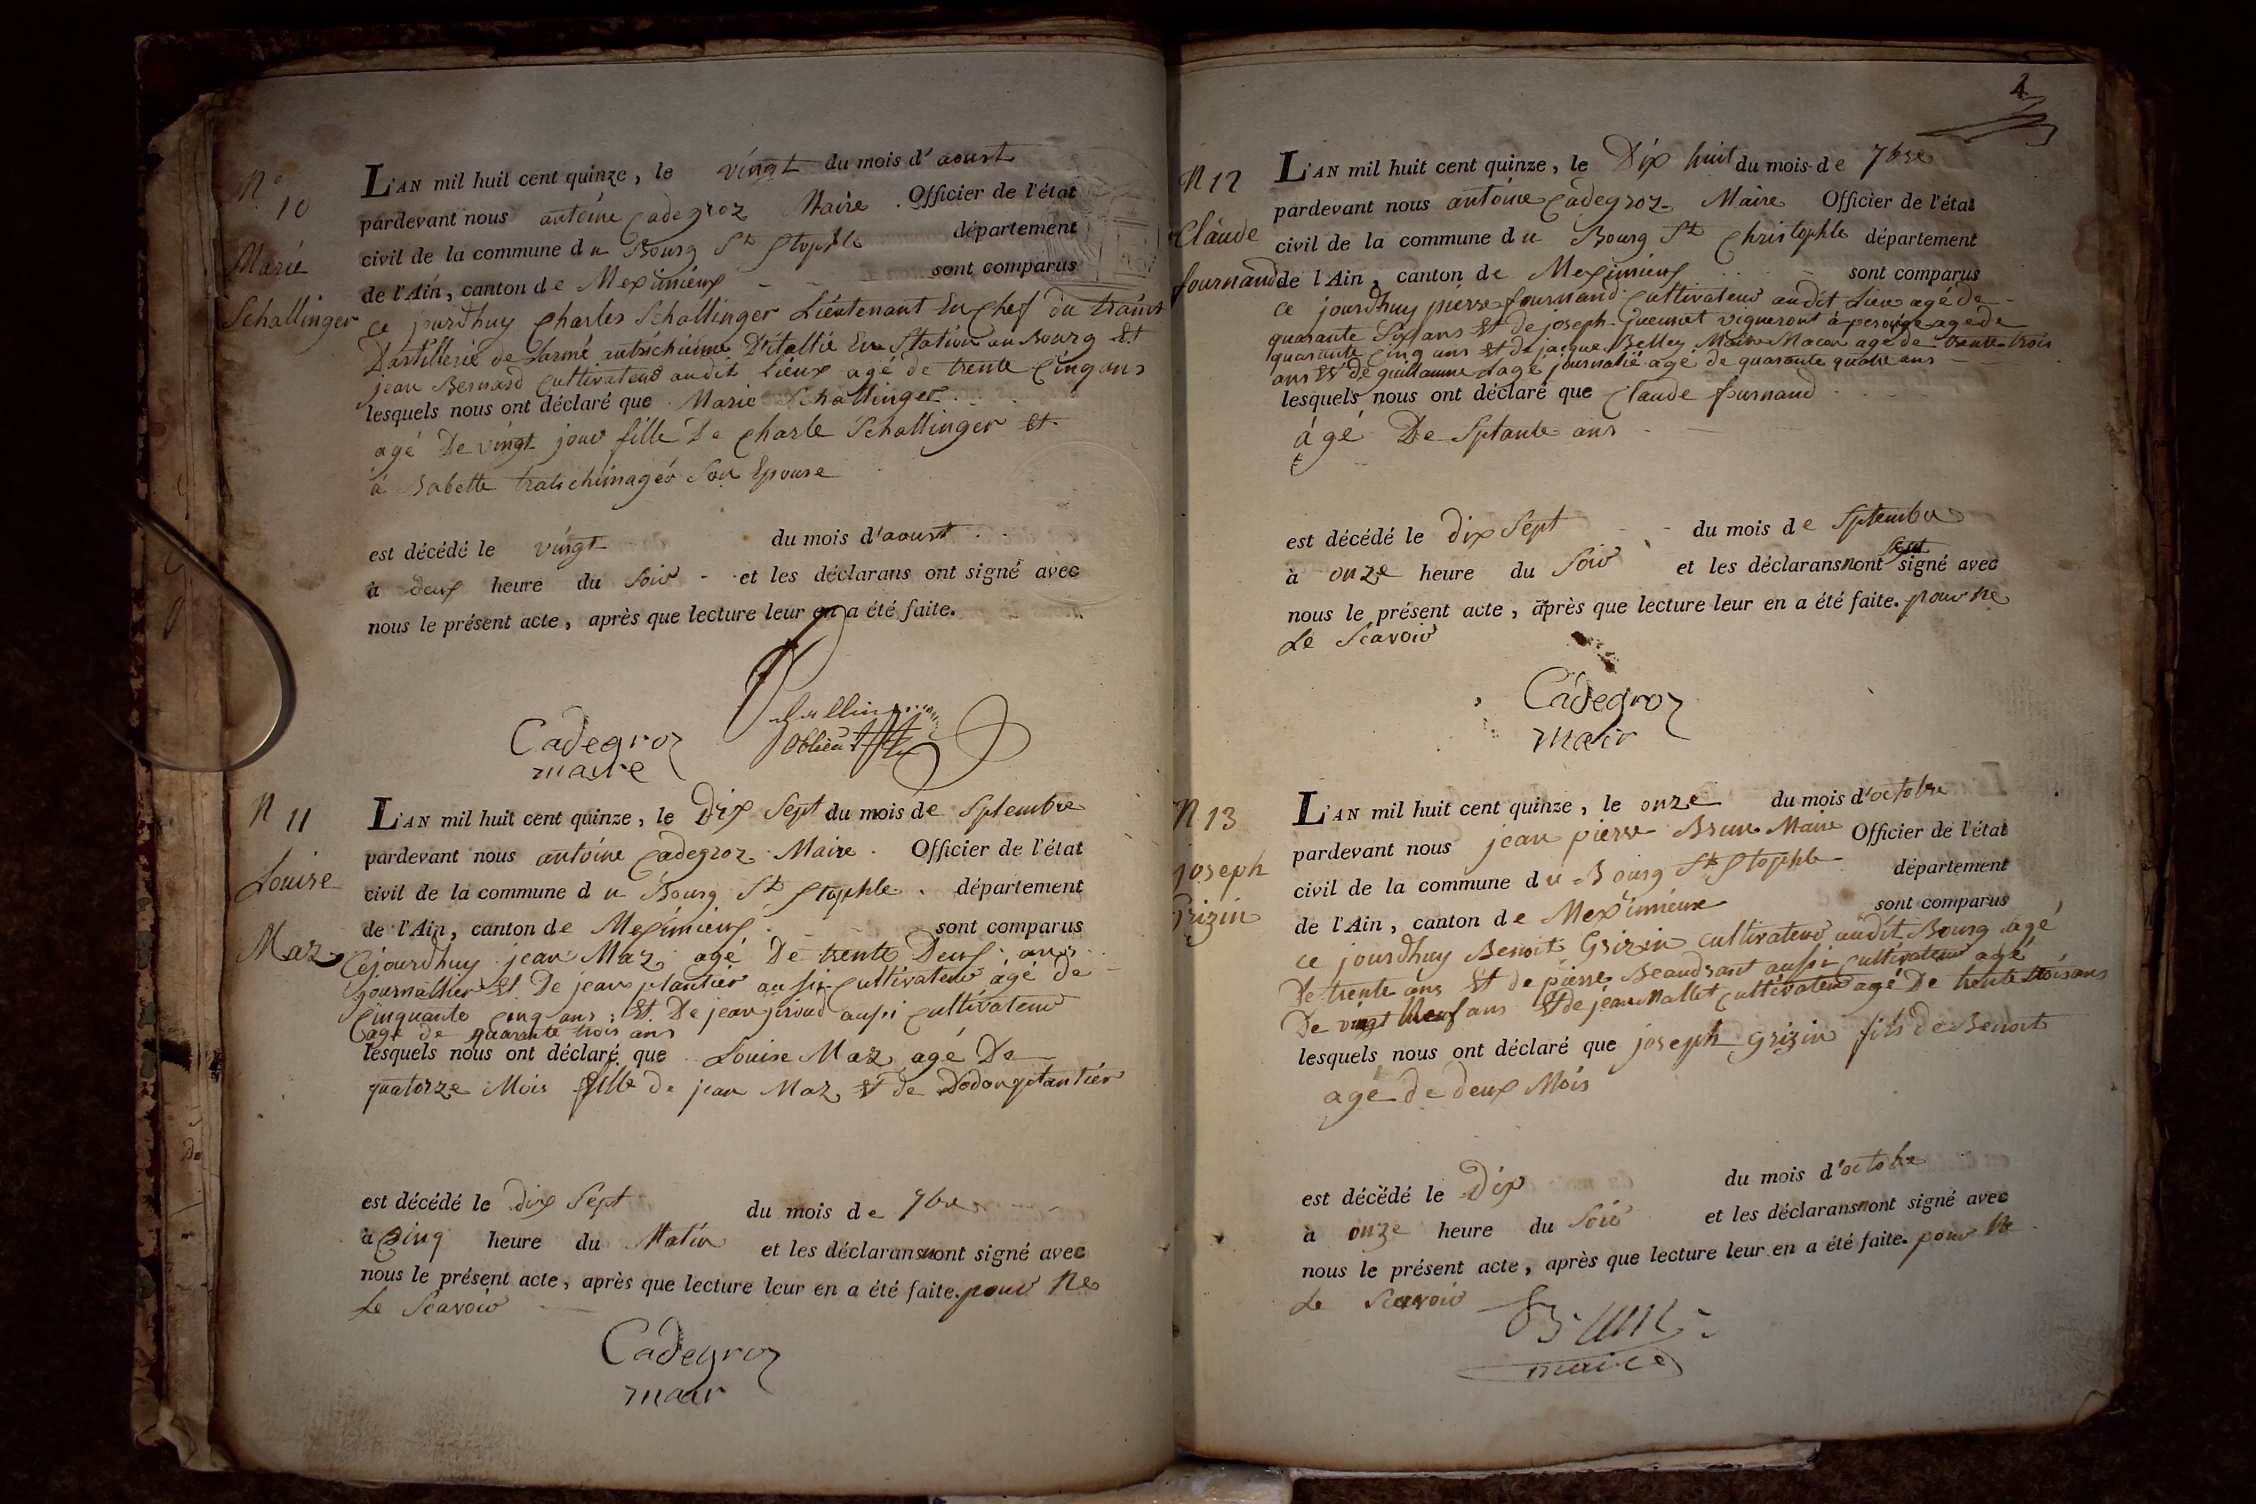 N°
10
Marie
Schallinger
L'AN mil huit cent quinze, le vingt du mois d'aoust
pardevant nous antoine Cadegroz Maire. Officier de l'état
civil de la commune du Bourg St Stophle département
de l'Ain, canton de Meximieux sont comparus
ce jourdhuy Charles Schallinger Lieutenant En Chef du trains
Dartillerie de Larmé autrichiene D'itallie En Station au Bourg Et
jean Bernard Cultivateur audit Lieux agé de trente Cinq ans
lesquels nous ont déclaré que Marie Schallinger
agé De vingt jour fille De Charle Schallinger Et
a Babette son Epouse
est décédé le vingt du mois d'aoust
à deux heure du Soir et les déclarans ont signé avec
nous le présent acte, après que lecture leur en a été faite.
Cadegroz
maire
N 11
Louise
Maz
L'AN mil huit cent quinze, le Dix Sept du mois de Sptembre
pardevant nous antoine Cadegroz Maire. Officier de l'état
civil de la commune du Bourg St Stophle. département
de l'Ain, canton de Meximieux sont comparus
Cejourdhuy jean Maz agé De trente Deux ans
journallier Et De jean plantier aussi Cultivateur agé de
Cinquante Cinq ans; Et. De jean jiroud aussi Cultivateur
agé de quarante trois ans
lesquels nous ont déclaré que Louise Maz agé De
quatorze Mois fille de jean Maz Et de Dodonplantier
est décédé le dix Sept du mois de 7bre
à Cinq heure du Matin et les déclarans nont signé avec
nous le présent acte, après que lecture leur en a été faite. pour Ne
Le Scavoir
Cadegroz
mair
2
N 12
Claude
fournand
L'AN mil huit cent quinze, le Dix huit du mois de 7bre
pardevant nous antoine Cadegroz Maire Officier de l'état
civil de la commune du Bourg St Christophle département
de l'Ain, canton de Meximieux sont comparus
ce jourdhuy pierre fournand Cultivateur audit Lieu agé de
quarante Six ans Et de joseph Gueunet vigneront à perouge agé de
quarante Cinq ans Et de jacque Belley Maitre Macon agé de trente trois
ans Et de guillaume Lagé journalié agé de quarante quatre ans
lesquels nous ont déclaré que Claude furnand
ágé De Sptante ans
est décédé le dix Sept du mois de Sptembre
à onze heure du Soir et les déclarans nont signé avec
nous le présent acte, après que lecture leur en a été faite. pour Ne
Le Scavoir
Cadegroz
mair
N 13
joseph
Grizin
L'AN mil huit cent quinze, le onze du mois d'octobre
pardevant nous jean pierre Brun Maire Officier de l'état
civil de la commune du Bourg St Stophle département
de l'Ain, canton de Meximieux sont comparus
ce jourdhuy Benoit Grizin cultivateur audit Bourg agé
De trente ans Et de pierre Beaudrant aussi Cultivateur agé
De vingt Neuf ans Et de jean Mallet Cultivateur agé De trente trois ans
lesquels nous ont déclaré que joseph Grizin fils de Benoit
agé de deux Mois
est décédé le Dix du mois d'octobre
à onze heure du Soir et les déclarans nont signé avec
nous le présent acte, après que lecture leur en a été faite. pour Ne
Le Scavoir
Brun
maire